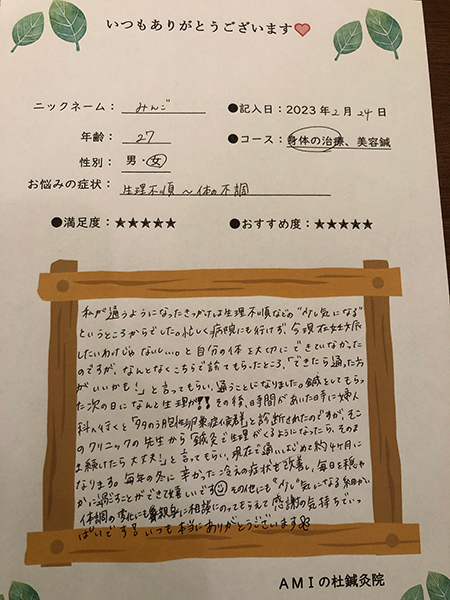 いつもありがとうございます
ニックネーム： みんご ●記入日：2023年2月24日
年齢： 27 ●コース：身体の治療、美容鍼
性別： 男・女
お悩みの症状： 生理不順〜体の不調
●満足度：★★★★★ ●おすすめ度：★★★★★
私が通うようになったきっかけは生理不順などの"少し気になる"
というところからでした。忙しく病院にも行けず 今現在妊娠
したいわけじゃないしい。と自分の体を大切にできていなかった
のですが、なんとなくこちらで診てもらったところ、「できたら通った方
がいいかも！」と言ってもらい、通うことになりました。鍼をしてもらっ
た次の日になんと生理が!! その後、時間があいた日時に婦人
科へ行くと「多のう胞性卵巣症候群」と診断されたのですが、そこ
のクリニックの先生から「鍼灸で生理がくるようになったら、そのま
ま続けたら大丈夫！」と言ってもらい、現在で通いはじめて約4ヶ月に
なります。毎年の冬に辛かった冷えの症状も改善し、毎日を穏や
かに過ごすことができて嬉しいです その他にも"少し"気になる細かい
体調の変化にも親身に相談にのってもらえて感謝の気持ちでいっ
ぱいです！いつも本当にありがとうございます
AMIの杜鍼灸院